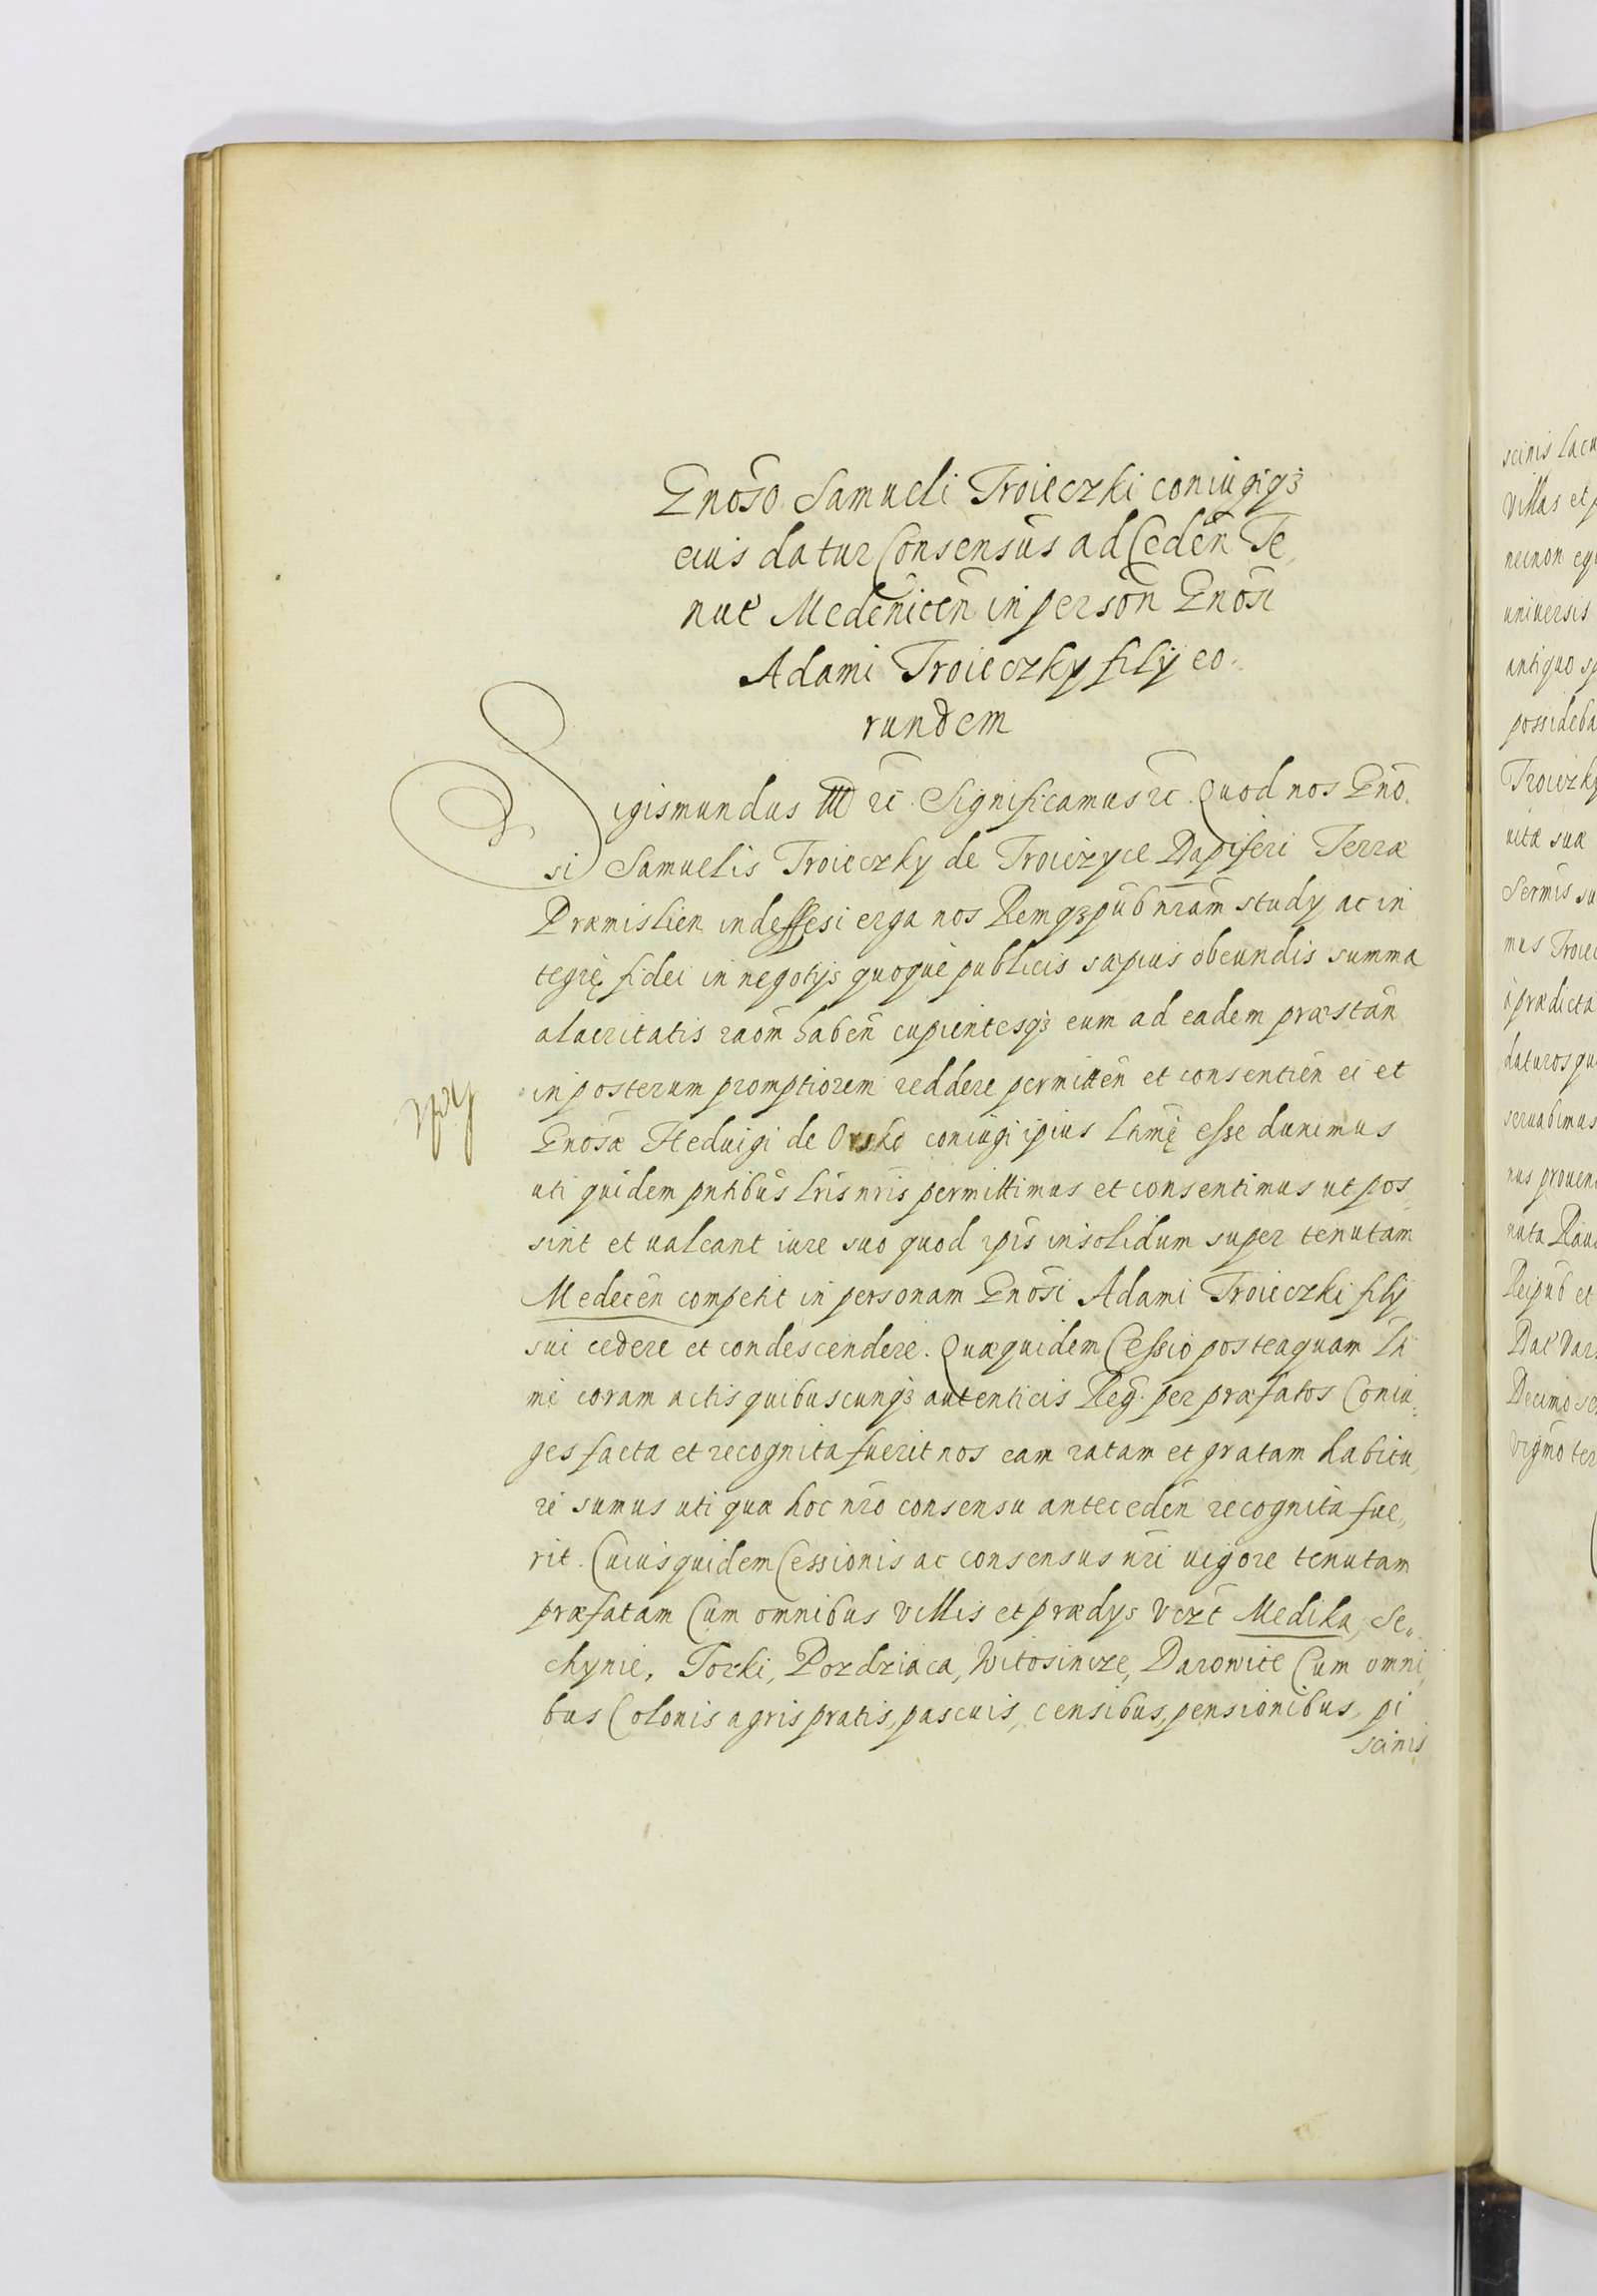 Gnoso Samueli Troieczki coniugiqꝫ
eius datur Consensus ad Ceden Te
nut Medenicen in person Gnosi
Adami Troieczky filÿ eo
rundem
Sigismundus III etc. Significamus etc. Quod nos Gno
si Samuelis Troieczky de Troiczyce Dapiferi Terræ
Præmislien indeffesi erga nos Remqꝫ pub nram study ac in
tegrę fidei in negotÿs quoque publicis sæpius obeundis summa
alacritatis raom haben cupientesqꝫ eum ad eadem præstan
in posterum promptiorem reddere permitten et consentien ei et
Gnosæ Heduigi de Orsko coniugi ipius Ltimę esse duximus
uti quidem pntibus Lris nris permittimus et consentimus ut pos
sint et ualeant iure suo quod ipis insolidum super tenutam
Medecen competit in personam Gnosi Adami Troieczki filÿ
sui cedere et condescendere. Quæquidem Cessio posteaquam Lti
me coram actis quibuscunqꝫ autenticis Reg. per præfatos Coniu
ges facta et recognita fuerit nos eam ratam et gratam habitu
ri sumus uti quæ hoc nro consensu anteceden recognita fue
rit. Cuius quidem Cessionis ac consensus nri uigore tenutam
præfatam Cum omnibus villis et prædys vizt Medika, Se
chynie, Torki, Pozdziaca, Witosincze, Darowice Cum omni
bus Colonis agris pratis, pascuis, censibus, pensionibus, pi
scinis
scinis
villas et
necnon
uniuersis
antiquo
Troiczky
uitæ suæ
mus
prædicta
seruabimus
nuta
Reipub et
Decimo